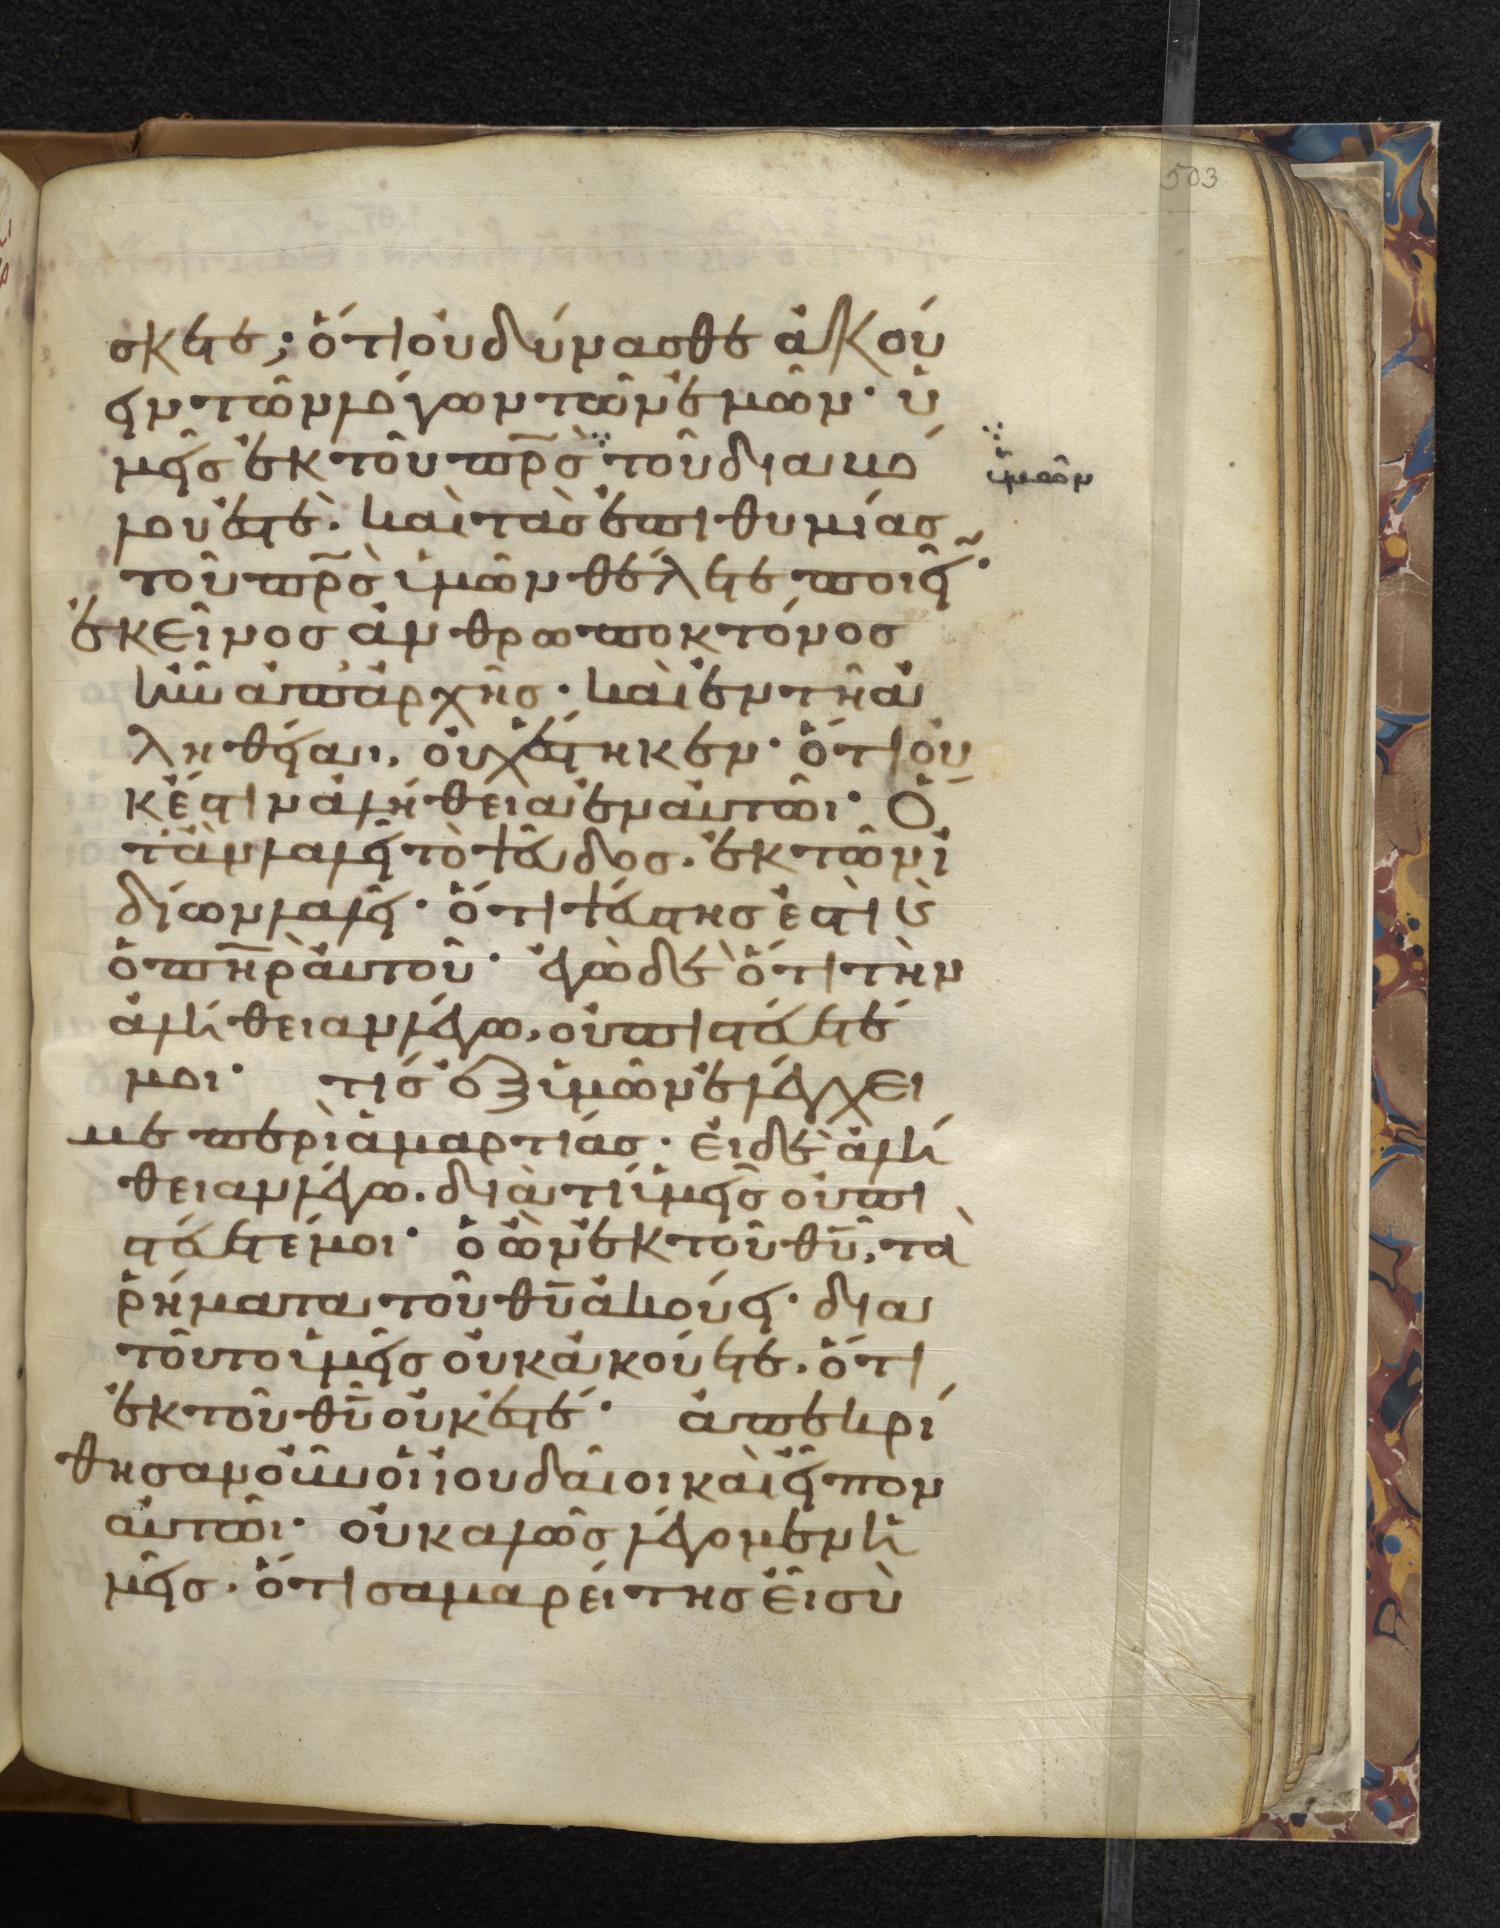 503
σκετε; ὅτι οὐ δύνασθε ἀκού
ειν τῶν λόγων τῶν ἐμῶν· ὑ
μεῖς ἐκ τοῦ πρ̅ς̀ τοῦ διαβό
λου ἐστὲ· καὶ τὰς ἐπιθυμίας
τοῦ πρ̅ς̀ ὑμῶν θέλετε ποιεῖ̃·
ἐκεῖνος ἀνθρωποκτόνος
ἦν ἀπ' ἀρχῆς· καὶ ἐν τῆ ἀ
ληθείαι, οὐχ ἕστηκεν· ὅτι οὐ
κ ἔστιν ἀλήθεια ἐν αὐτῶι· Ὅ
τἂν λαλῆ τὸ ψεῦδος· ἐκ τῶν ἰ
δίων λαλεῖ· ὅτι ψεύστης ἐστὶ κὶ
ὁ πη̅ρ̀ αὐτοῦ· ἐγὼ δὲ ὅτι τὴν
ἀλήθειαν λέγω, οὐ πιστεύετέ
μοι· τίς ἐξ ὑμῶν ἐλέγχει
με περὶ ἁμαρτίας· εἰ δὲ ἀλή
θειαν λέγω· διὰ τί ὑμεῖς οὐ πι
στεύετέ μοι· ὁ ὢν ἐκ τοῦ θ̅υ̅, τὰ
ῥήματα τοῦ θ̅υ̅ ἀκούει· δια
τοῦτο ὑμεῖς οὐκ ἀκούετε· ὅτι
ἐκ τοῦ θ̅υ̅ οὐκ ἐστέ· ἀπεκρί
θησαν οὖν οἱ ἰουδαῖοι καὶ εἶπον
αὐτῶι· οὐ καλῶς λέγομεν ἡ
μεῖς· ὅτι σαμαρείτης εἶ σὺ
ὑμῶν